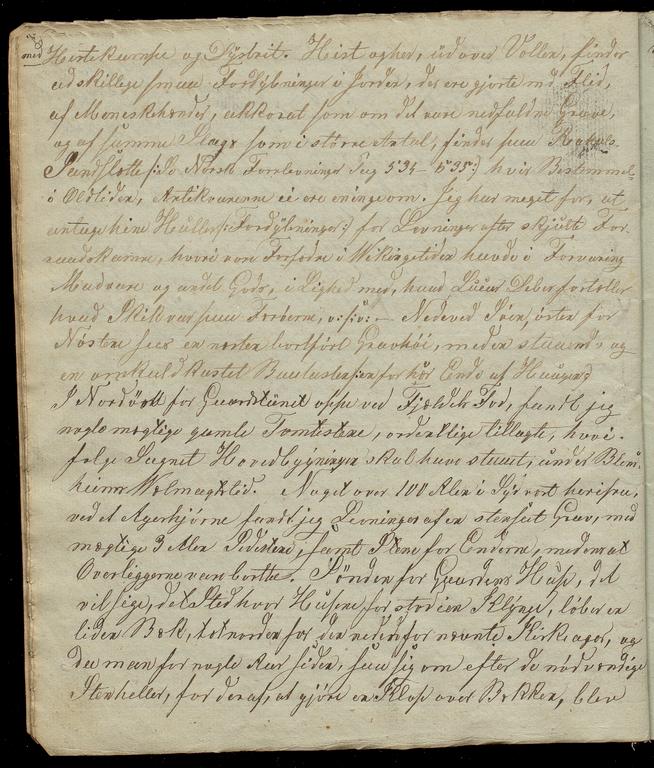 med Hestekampe og Dÿstrit. Hist og her, üdover Vollen, findes
adskillige smaa Fordÿbninger i Jorden, der ere gjorte med Flid,
af Meneskehænder, akkorat som om det vare nedfaldne Grave,
og af samme Slags som i større Antal, findes paa
Sandslotte /: Se Norsk Fornlevninger Pag 534 – 535:/ hvis Bestemmel-
i Oldtiden, Antikvarerne ei ere enige om. Jeg har meget for, at
antage hine Hüller /: Fordÿbninger:/ for Levninger efter skjulte For-
raadskamre, hvori vore Forfædre i Wikingetiden havde i Forvaring
Madvare og andet Gods, i Lighed med, hvad
hvad Skik var paa Færøerne, – Nedeved Søen, østen for
Nöstene sees en næsten bortført Gravhöi, med en staaende og
en omkuldkastet Bautasten /: en for hver Ende af Haugen:/
I Nordöst for Gaardstünet oppe ved Fjeldets Fod, fandt jeg
nogle mægtige gamle Tomtestene, ordentlige tillagte, hvor i-
følge Sagnet Hovedbÿgningen skal have staaet, ünder
heims Welmagtstid. Noget over 100 Alen i Sÿdvest herifra,
ved et Agerhjørne fandt jeg Levninger af en stensat Grav, med
mægtige 3 Alen Sidestene, samt Stene for Enderne, medens at
Overliggerne vare borte. Sönden for Gaardens Huse, det
vil sige, det Sted hvor Husene før stod i en Klÿnge, løber en
liden Bæk, tæt norden for den nedenfor nævnte Kirkeager, og
da man for nogle Aar siden, saa sig om efter de nödvændige
Stenheller, for deraf, at gjöre en Klop over Bækken, blev